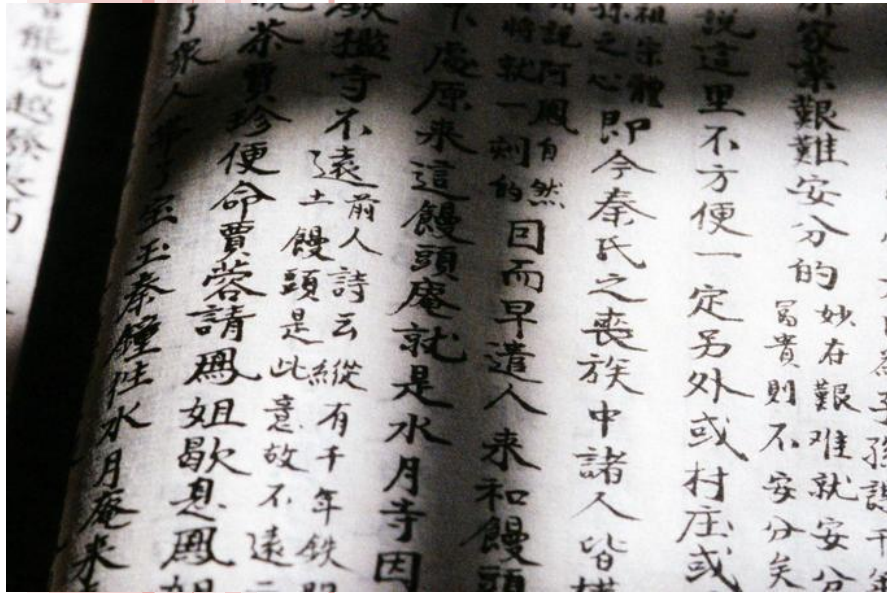 家業艱難安分的
妙在艱难就安分
富貴則不安分矣
說這里不方便一定另外或村庄或
祖宗體
孫之心
即今秦氏之喪族中諸人皆
說阿鳳自然
将就一刻的
囙而早遣人来和饅頭
下處原来這饅頭庵就是水月寺因
檻寺不遠
前人詩云縱有千年鉄
土饅頭是此意故不遠二
茶賈珍便命賈蓉請鳳姐歇息鳳姐
了眾人 帶了宝玉秦鐘往水月庵来
能児越發